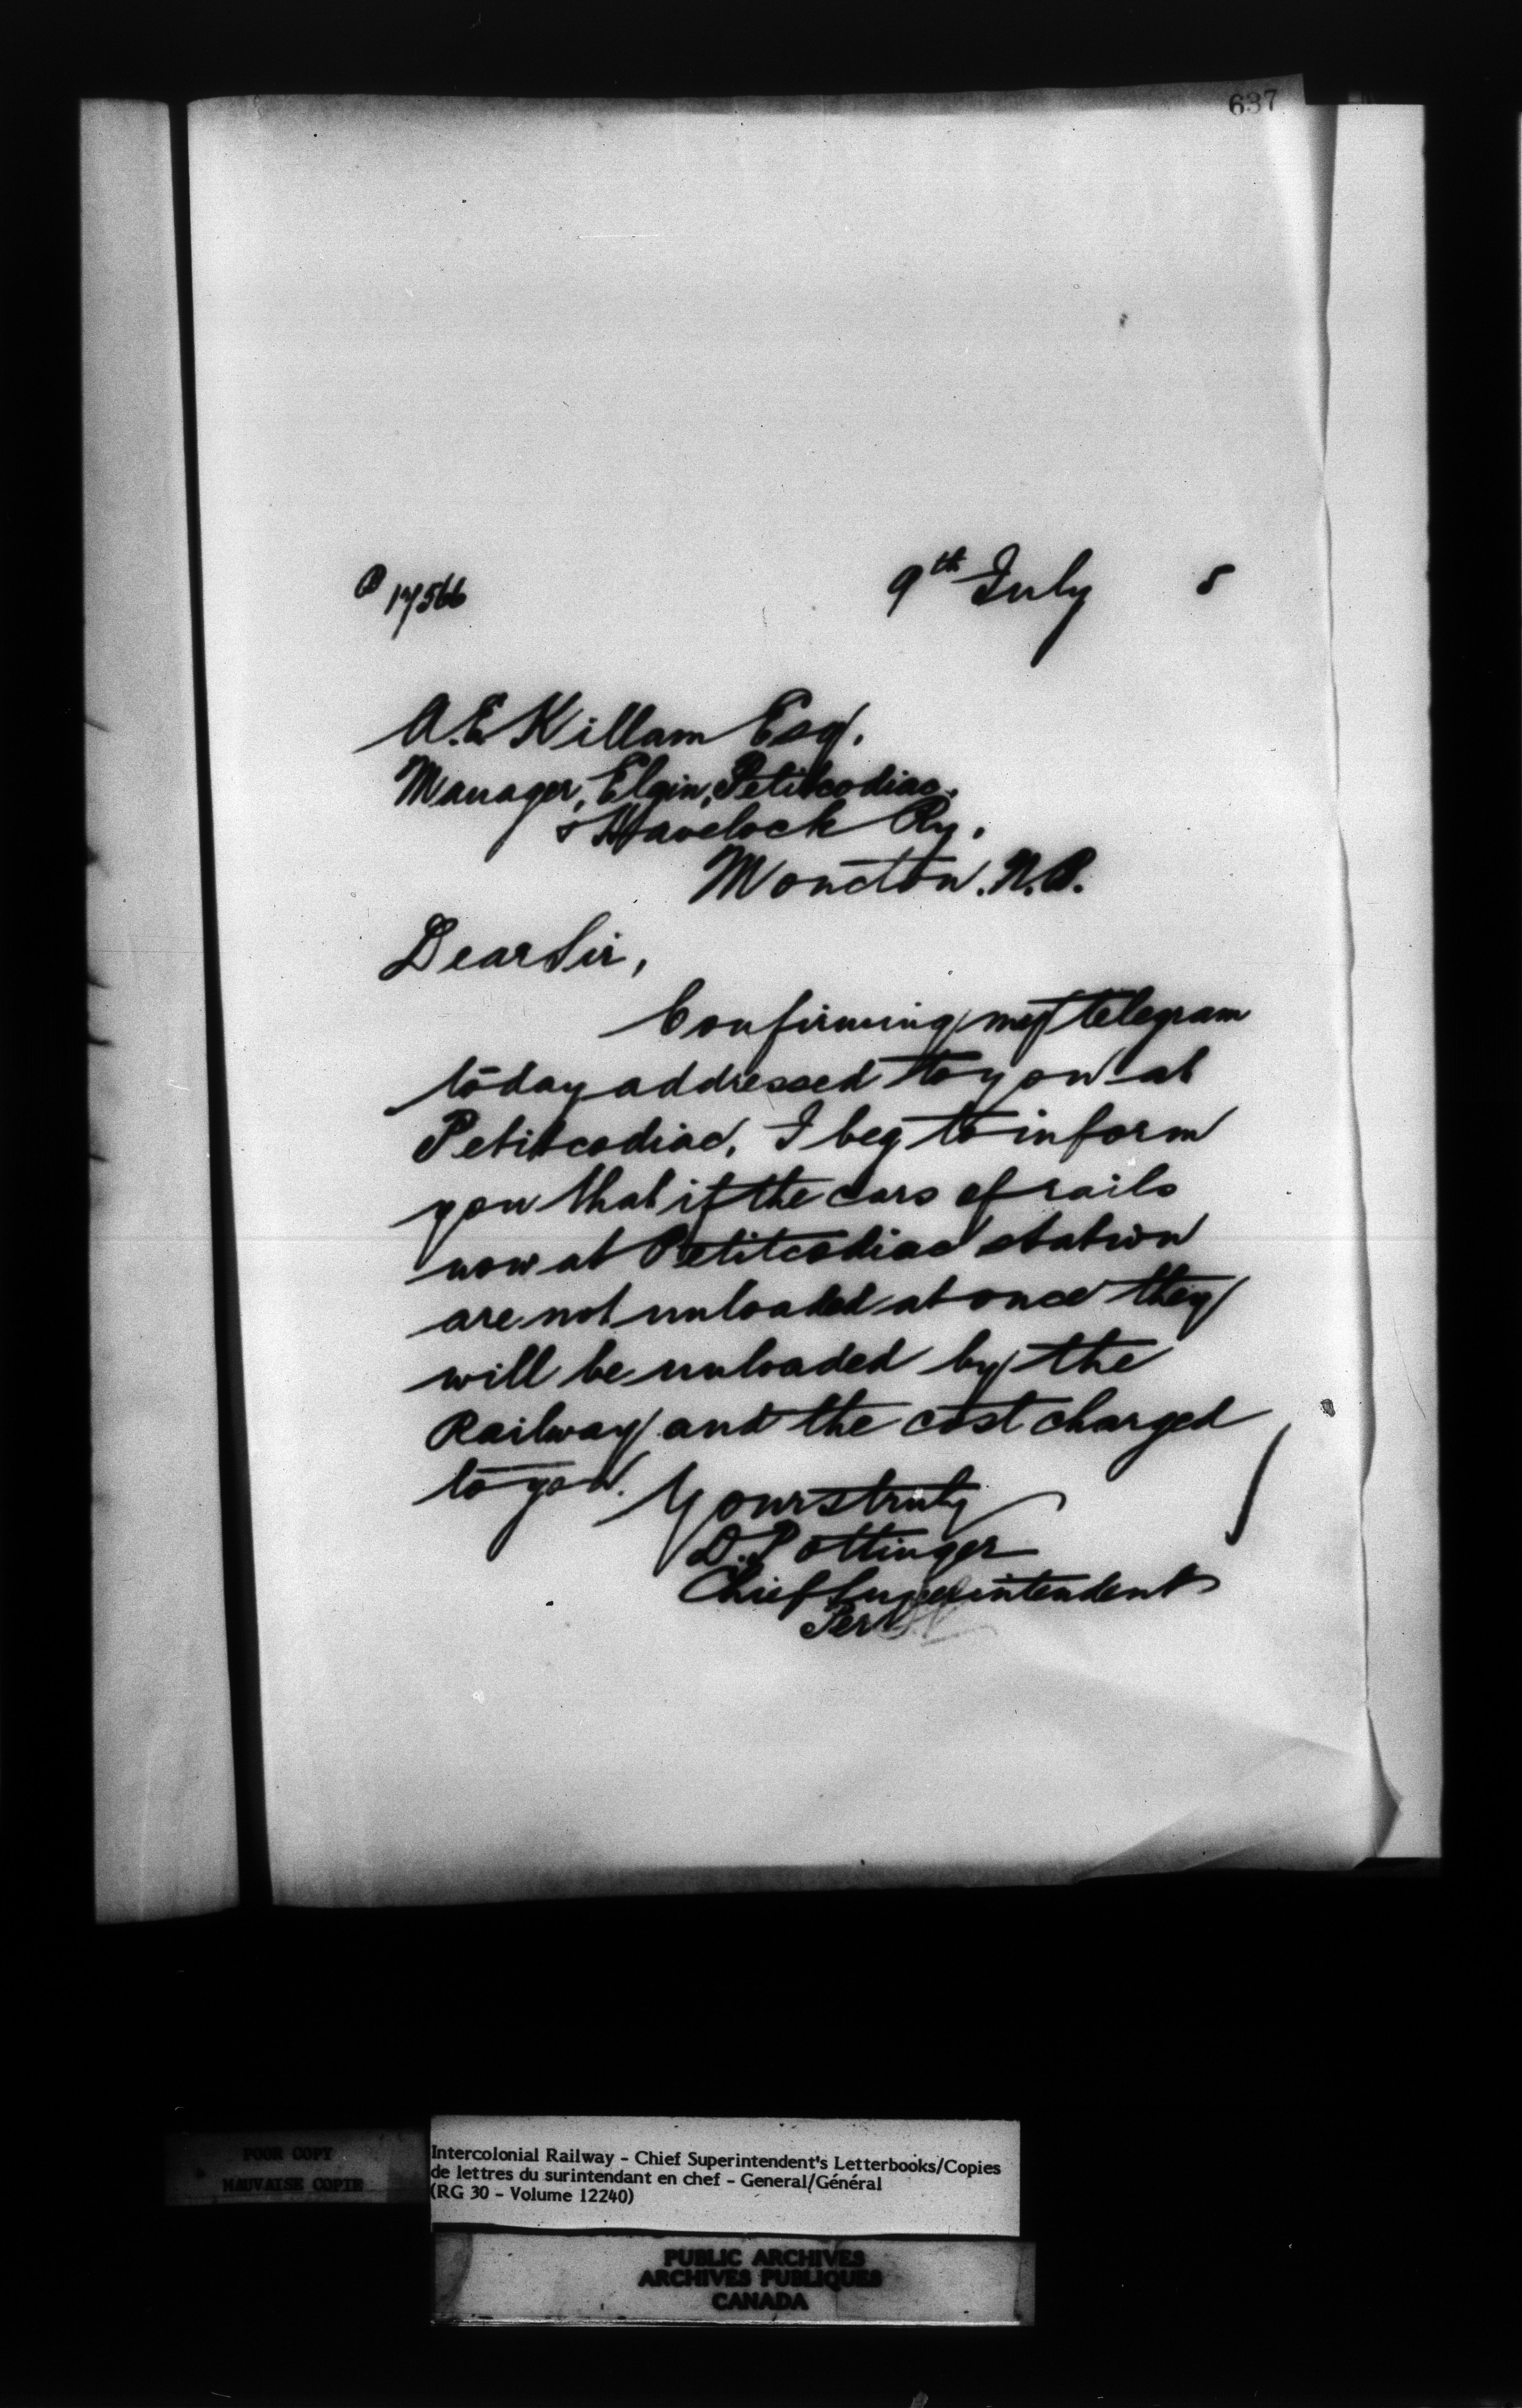 637
P 17566
9th July 5
A. E. Killam Esq.
Manager, Elgin, Petitcodiac.
& Havelock Ry.
Moncton. N.B.
Dear Sir,
Confirming my telegram
today addressed to you at
Petitcodiac, I beg to inform
you that if the cars of rails
now at Petitcodiac station
are not unloaded at once they
will be unloaded by the
Railway and the cost charged
to you.
Yours truly
D. Pottinger
Chief Superintendent
Per
POOR COPY
MAUVAISE COPIE
Intercolonial Railway - Chief Superintendent's Letterbooks/Copies
de lettres du surintendant en chef - General/Général
(RG 30 - Volume 12240)
PUBLIC ARCHIVES
ARCHIVES PUBLIQUES
CANADA